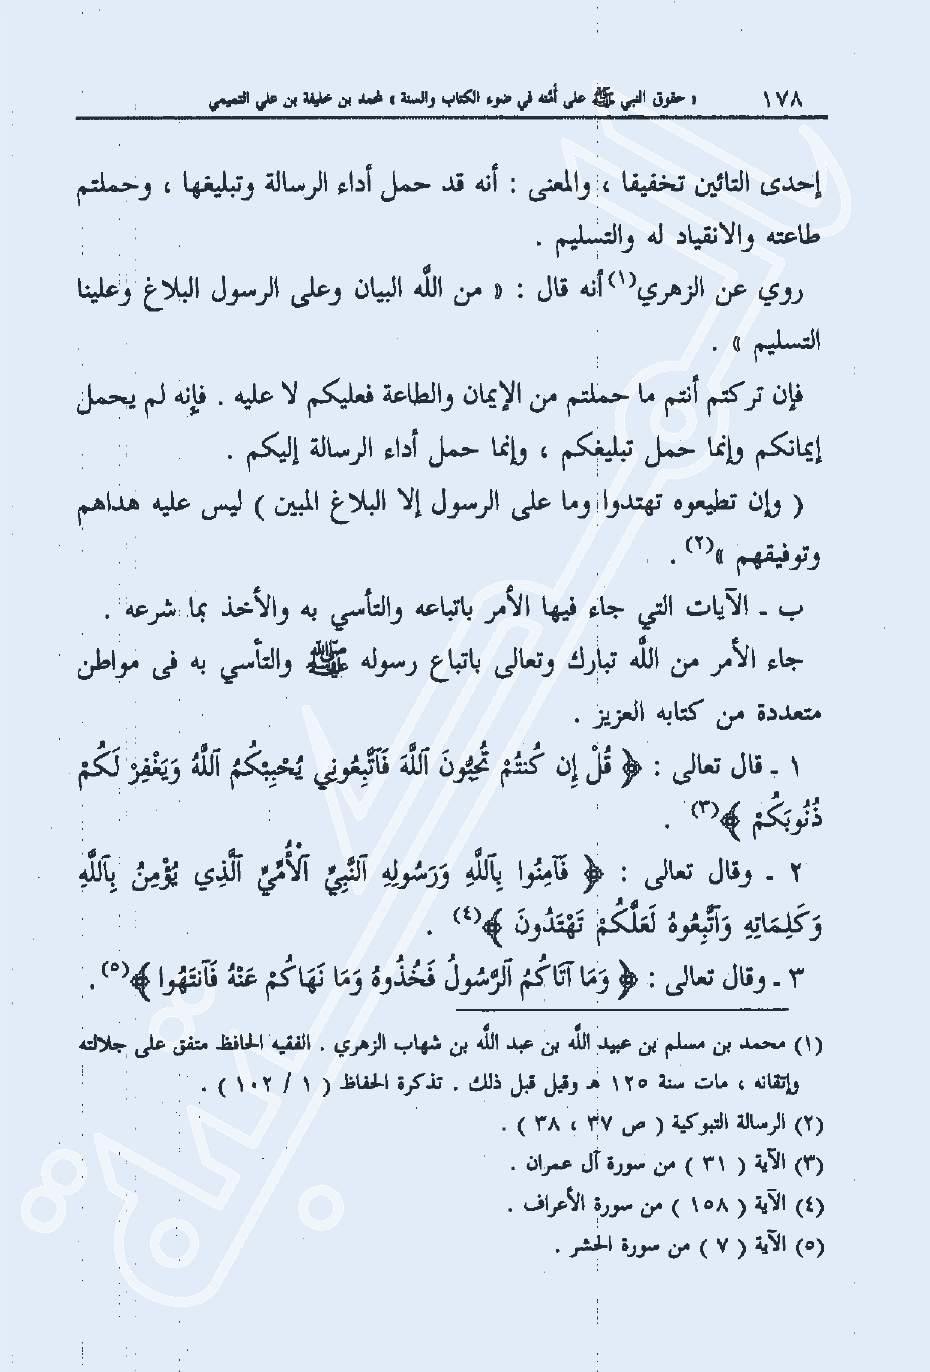 ١٧٨ « حقوق النبي ﷺ على أمته في ضوء الكتاب والسنة » لمحمد بن خليفة بن علي التميمي
إحدى التائين تخفيفا ، والمعنى : أنه قد حمل أداء الرسالة وتبليغها ، وحملتم
طاعته والانقياد له والتسليم .
روي عن الزهري(١) أنه قال : « من الله البيان وعلى الرسول البلاغ وعلينا
التسليم » .
فإن تركتم أنتم ما حملتم من الإيمان والطاعة فعليكم لا عليه . فإنه لم يحمل
إيمانكم وإنما حمل تبليغكم ، وإنما حمل أداء الرسالة إليكم .
( وإن تطيعوه تهتدوا وما على الرسول إلا البلاغ المبين ) ليس عليه هداهم
وتوفيقهم »(٢) .
ب ـ الآيات التي جاء فيها الأمر باتباعه والتأسي به والأخذ بما شرعه .
جاء الأمر من الله تبارك وتعالى باتباع رسوله ﷺ والتأسي به فى مواطن
متعددة من كتابه العزيز .
١ ـ قال تعالى : ﴿ قُلْ إِن كُنتُمْ تُحِبُّونَ ٱللَّهَ فَٱتَّبِعُونِي يُحْبِبْكُمُ ٱللَّهُ وَيَغْفِرْ لَكُمْ
ذُنُوبَكُمْ ﴾(٣) .
٢ ـ وقال تعالى : ﴿ فَآمِنُوا بِٱللَّهِ وَرَسُولِهِ ٱلنَّبِيِّ ٱلْأُمِّيِّ ٱلَّذِي يُؤْمِنُ بِٱللَّهِ
وَكَلِمَاتِهِ وَٱتَّبِعُوهُ لَعَلَّكُمْ تَهْتَدُونَ ﴾(٤) .
٣ ـ وقال تعالى : ﴿ وَمَا آتَاكُمُ ٱلرَّسُولُ فَخُذُوهُ وَمَا نَهَاكُمْ عَنْهُ فَٱنتَهُوا ﴾(٥) .
(١) محمد بن مسلم بن عبيد الله بن عبد الله بن شهاب الزهري . الفقيه الحافظ متفق على جلالته
وإتقانه ، مات سنة ١٢٥ هـ وقيل قبل ذلك . تذكرة الحفاظ ( ١ / ١٠٢ ) .
(٢) الرسالة التبوكية ( ص ٣٧ ، ٣٨ ) .
(٣) الآية ( ٣١ ) من سورة آل عمران .
(٤) الآية ( ١٥٨ ) من سورة الأعراف .
(٥) الآية ( ٧ ) من سورة الحشر .